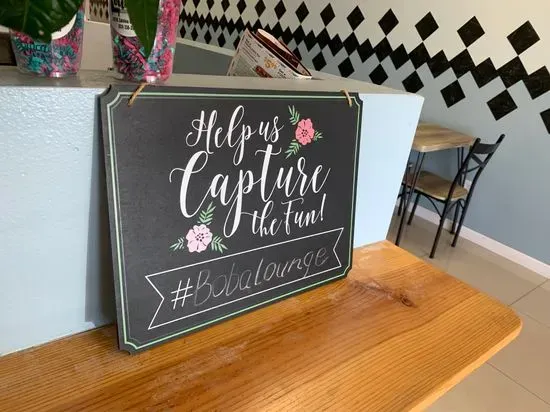 Help us
Capture
the Fun!
#Bobalounge